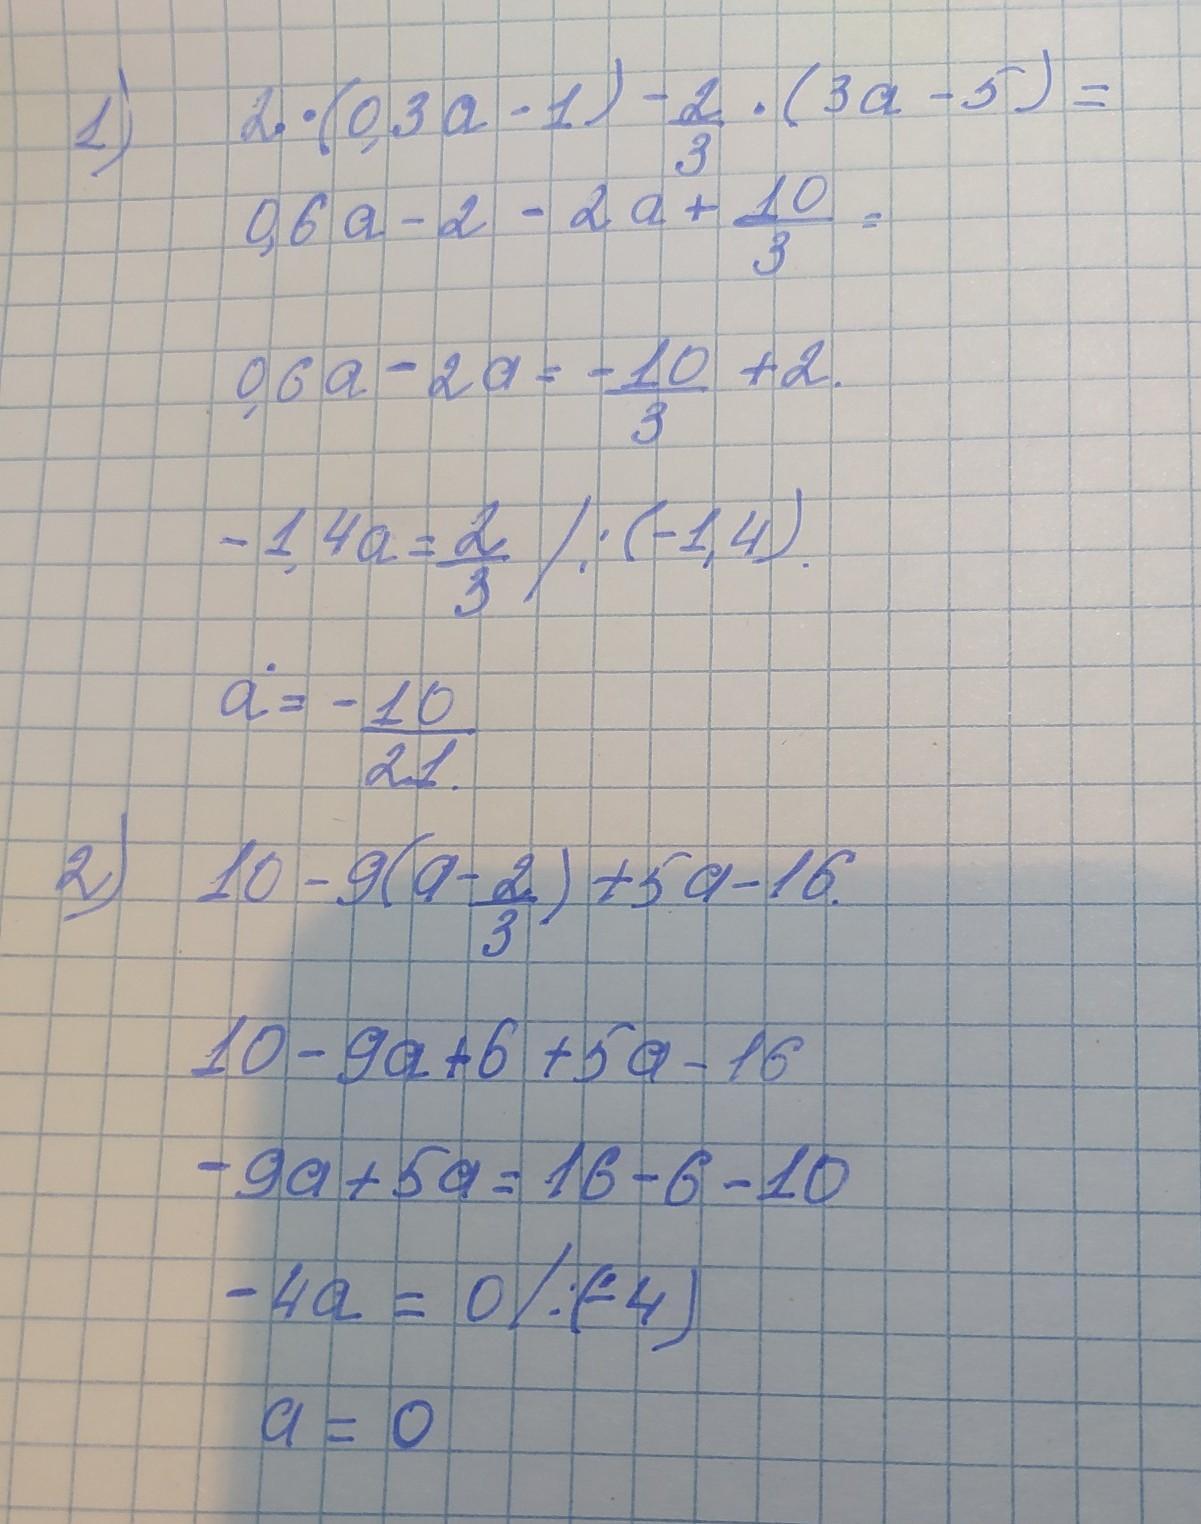 1) 2·(0,3a-1)-2/3·(3a-5)=
0,6a-2-2a+10/3=
0,6a-2a=-10/3+2.
-1,4a=2/3 /:(-1,4).
a=-10/21.
2) 10-9(a-2/3)+5a-16.
10-9a+6+5a-16
-9a+5a=16-6-10
-4a=0/:(-4)
a=0